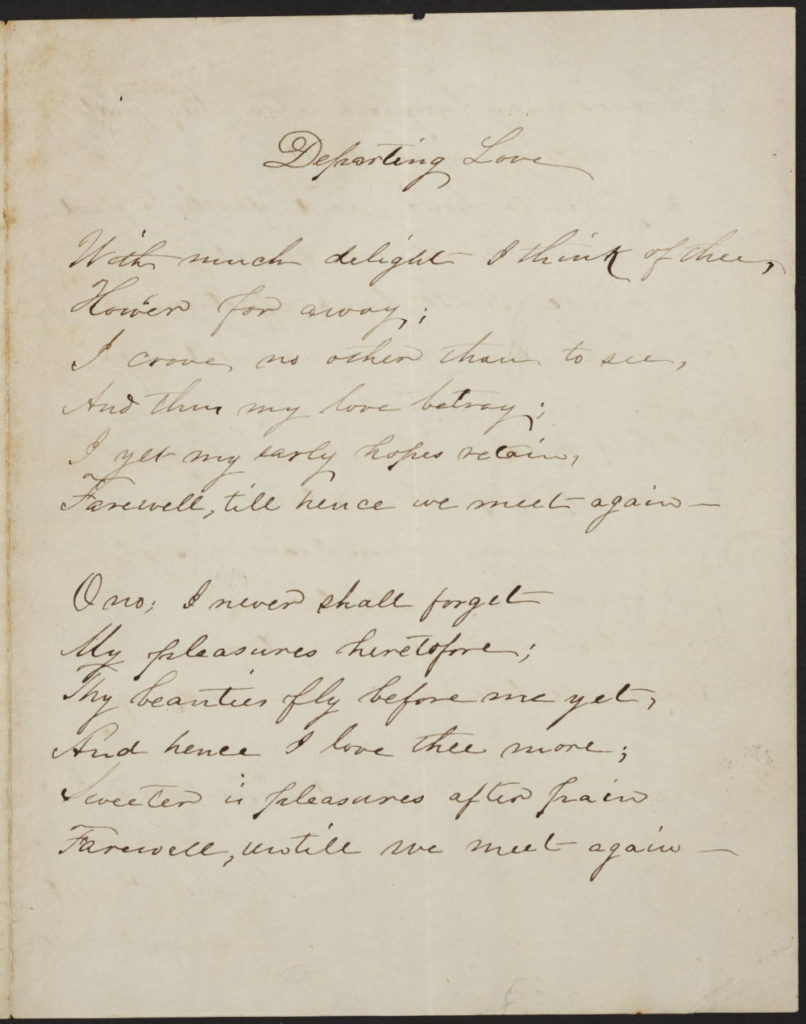 Departing Love
With much delight I think of thee,
Howe'er far away;
I crave no other than to see,
And thus my love betray;
I yet my early hopes retain,
Farewell, till hence we meet again —
O no; I never shall forget
My pleasures heretofore;
Thy beauties fly before me yet,
And hence I love thee more;
Sweeter is pleasures after pain
Farewell, untill we meet again —